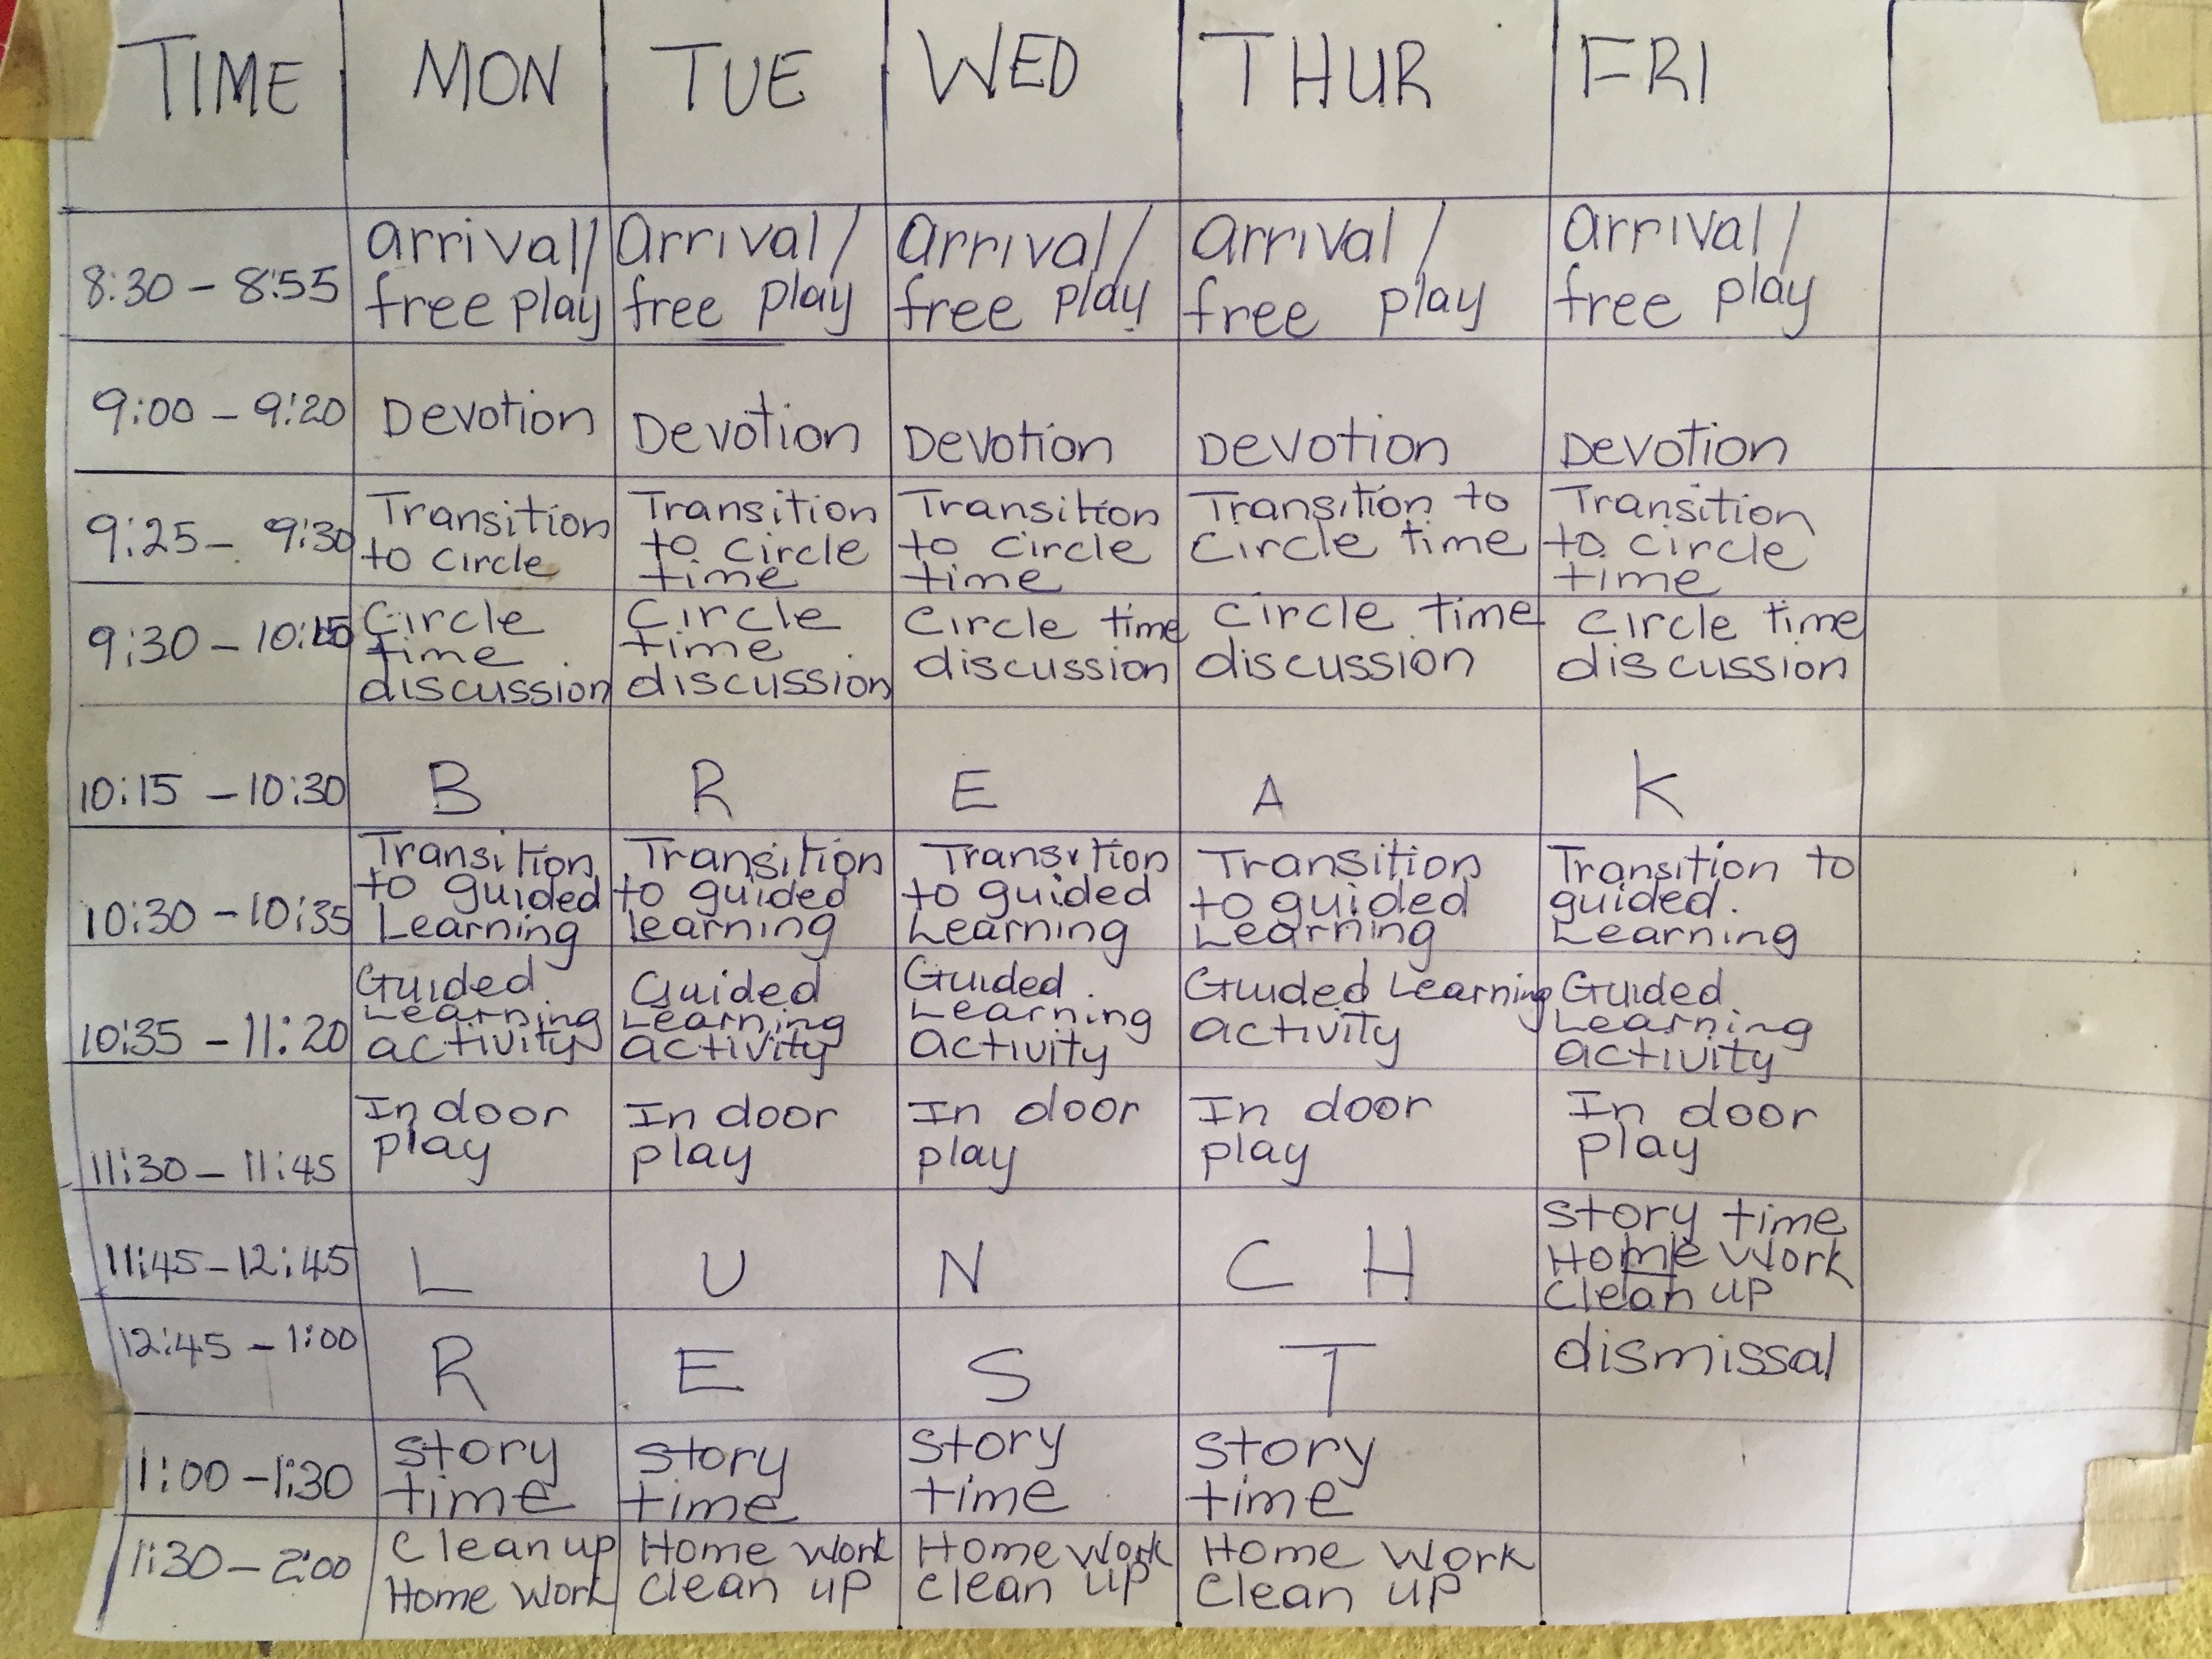 TIME MON TUE WED THUR FRI
8:30 - 8:55 arrival/ Arrival/ Arrival/ Arrival/ Arrival/
free play free play free play free play free play
9:00 - 9:20 Devotion Devotion Devotion Devotion Devotion
9:25 - 9:30 Transition Transition Transition Transition to Transition
to circle to circle to circle circle time to circle
time time time
9:30 - 10:15 Circle Circle Circle time circle time circle time
time time discussion discussion discussion
discussion discussion
10:15 - 10:30 B R E A K
10:30 - 10:35 Transition Transition Transition Transition Transition to
to guided to guided to guided to guided guided
Learning learning Learning Learning Learning
10:35 - 11:20 Guided Guided Guided Guided Learning Guided
Learning Learning Learning activity Learning
activity activity activity activity
11:30 - 11:45 In door In door In door In door In door
play play play play play
11:45 - 12:45 L U N C H story time
Home work
clean up
12:45 - 1:00 R E S T dismissal
1:00 - 1:30 story story story story
time time time time
1:30 - 2:00 Clean up Home work Home work Home work
Home work clean up clean up clean up